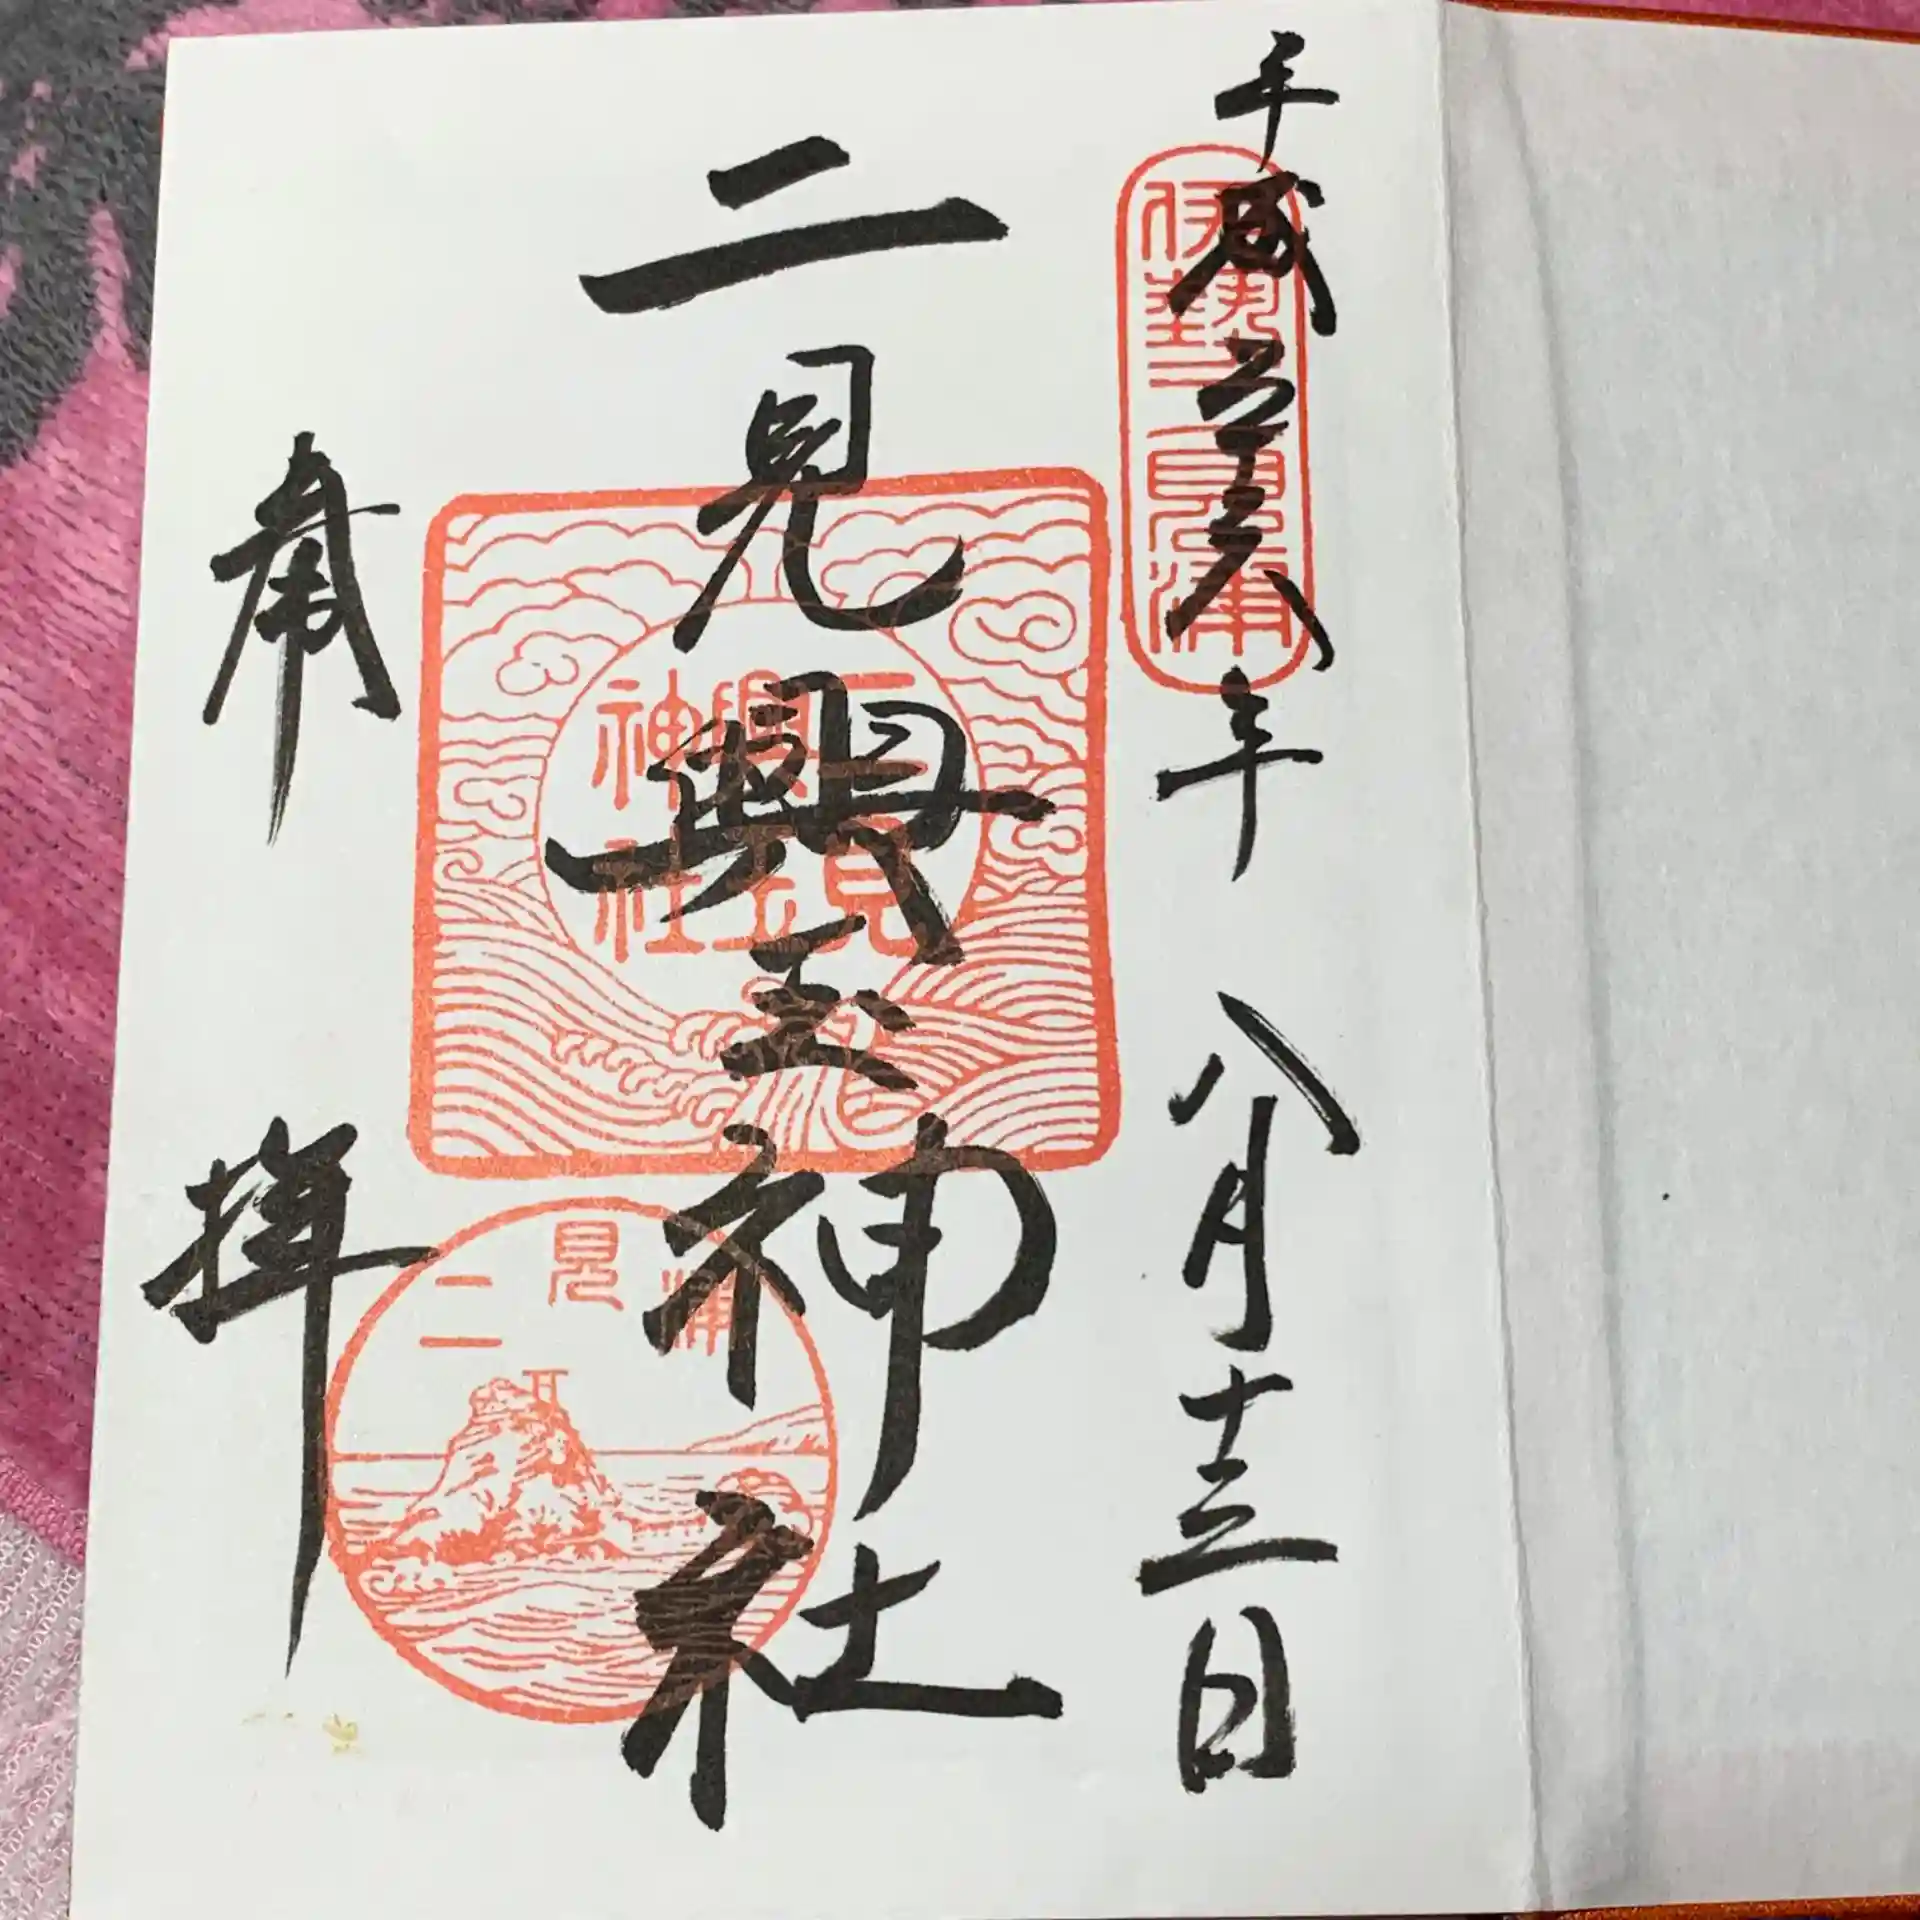 平成二十六年八月十三日
伊勢二見浦
二見興玉神社
二見興玉神社
二見浦
奉拝